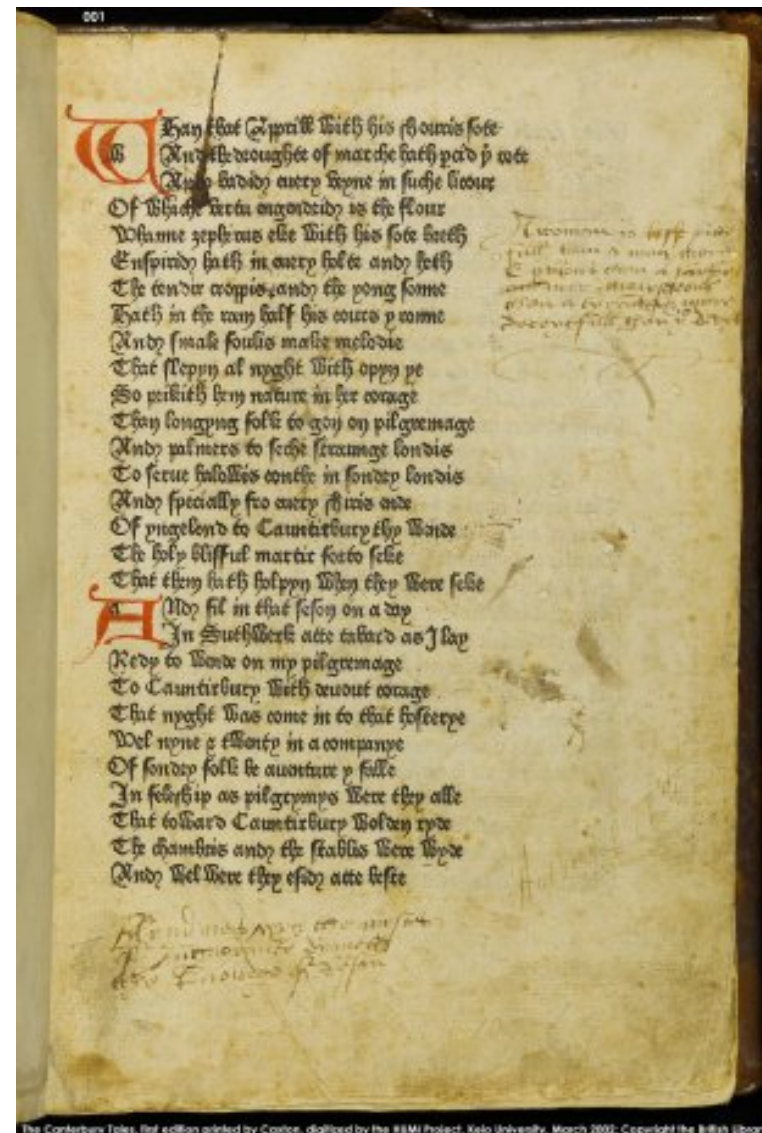 001
WHan that Apprill with his shouris sote
And the droughte of marche hath percid þe rote
And badid euery veyne in suche licour
Of whiche vertu engendrid is the flour
Whanne zepherus eke with his sote breth
Enspirid hath in euery holte and heth
The tendir croppis and the yong sonne
Hath in the ram half his cours y ronne
And smale foulis make melodie
That slepyn al nyght with opyn ye
So prikith hem nature in her corage
Than longyng folk to gon on pilgremage
And palmers to seche straunge londis
To serue halowis couthe in sondry londis
And specially fro euery shiris ende
Of yngelond to Cauntirbury thy wende
The holy blisful martir forto seke
That them hath holpyn when they were seke
ANd fil in that seson on a day
In Suthwerk atte tabard as I lay
Redy to wende on my pilgremage
To Cauntirbury with deuout corage
That nyght was come in to that hosterye
Wel nyne & twenty in a companye
Of sondry folk be auenture y falle
In feleship as pilgrymys were they alle
That toward Cauntirbury wolden ryde
The chambris and the stablis were wyde
And wel were they esid atte beste
The Canterbury Tales, first edition printed by Caxton, digitized by the HUMI Project, Keio University, March 2002; Copyright the British Library